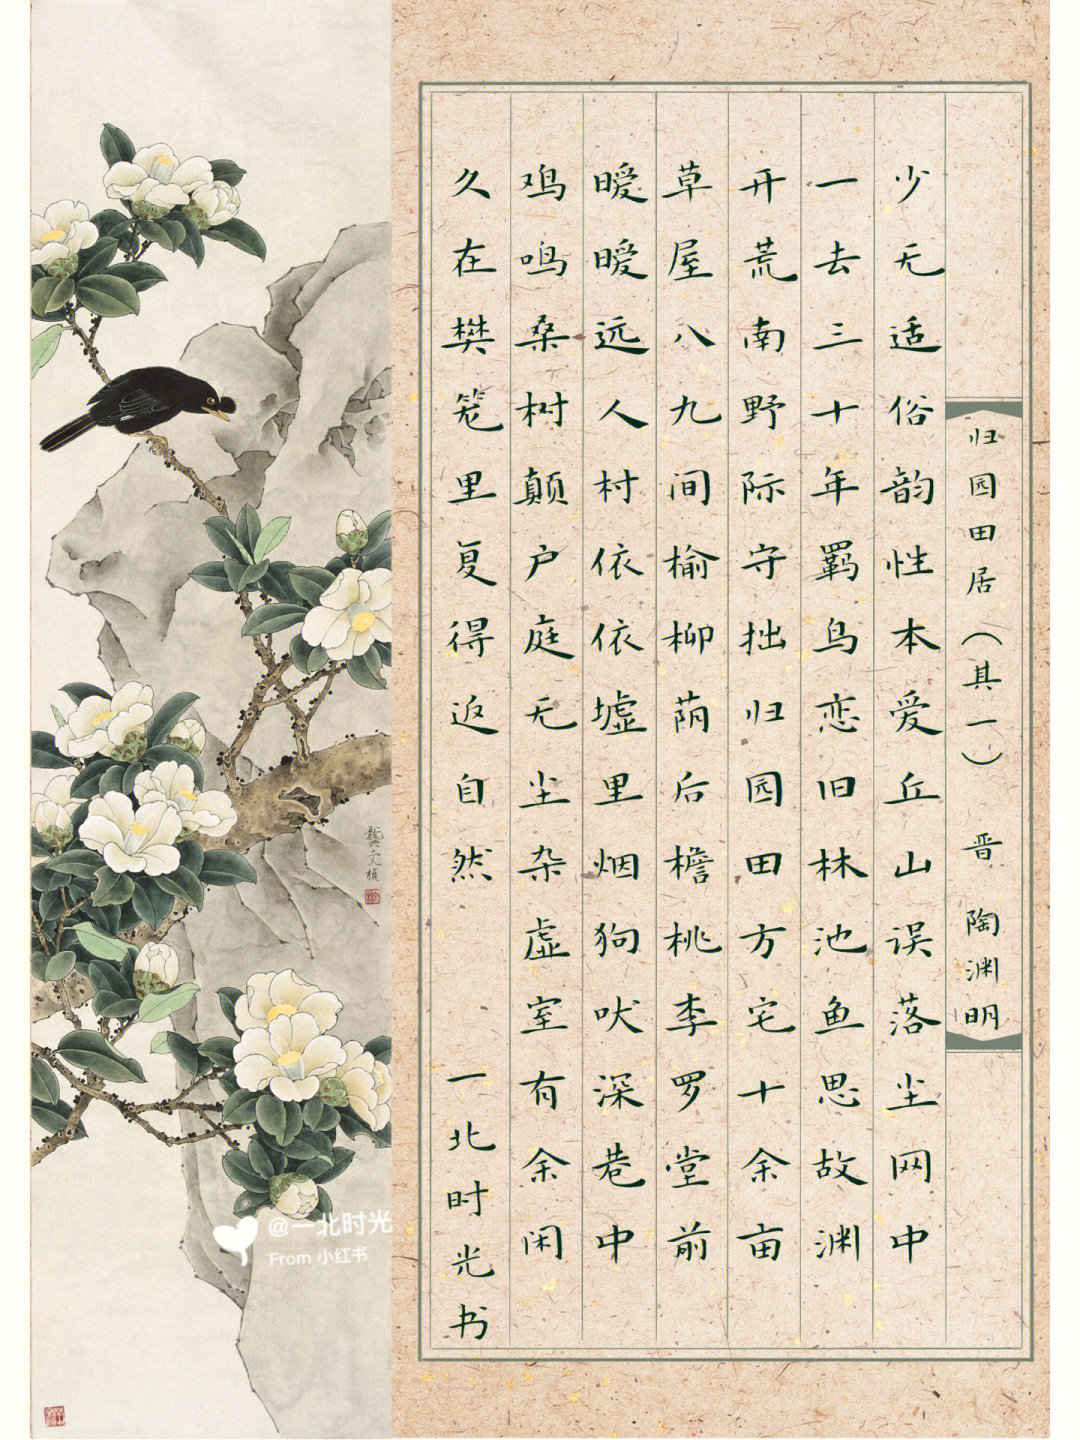 归园田居（其一） 晋 陶渊明
少无适俗韵性本爱丘山误落尘网中
一去三十年羁鸟恋旧林池鱼思故渊
开荒南野际守拙归园田方宅十余亩
草屋八九间榆柳荫后檐桃李罗堂前
暧暧远人村依依墟里烟狗吠深巷中
鸡鸣桑树颠户庭无尘杂虚室有余闲
久在樊笼里复得返自然 一北时光书
龚文桢
@一北时光
From 小红书